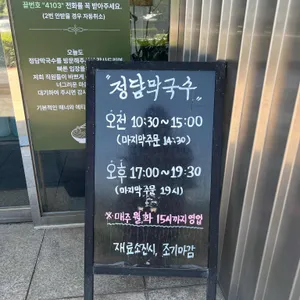 끝번호 "4103" 전화를 꼭 받아주세요.
(2번 안받을 경우 자동취소)
오늘도
정담막국수를 방문해주
빠른 입장을
저희 직원들이 바쁘게
너그러운 마
대기하여 주시면 감사
기본적인 매너와 예의
"정담막국수"
오전 10:30~15:00
(마지막주문 14:30)
오후 17:00~19:30
(마지막 주문 19시)
※매주 월, 화 15시까지 영업
재료소진시, 조기마감